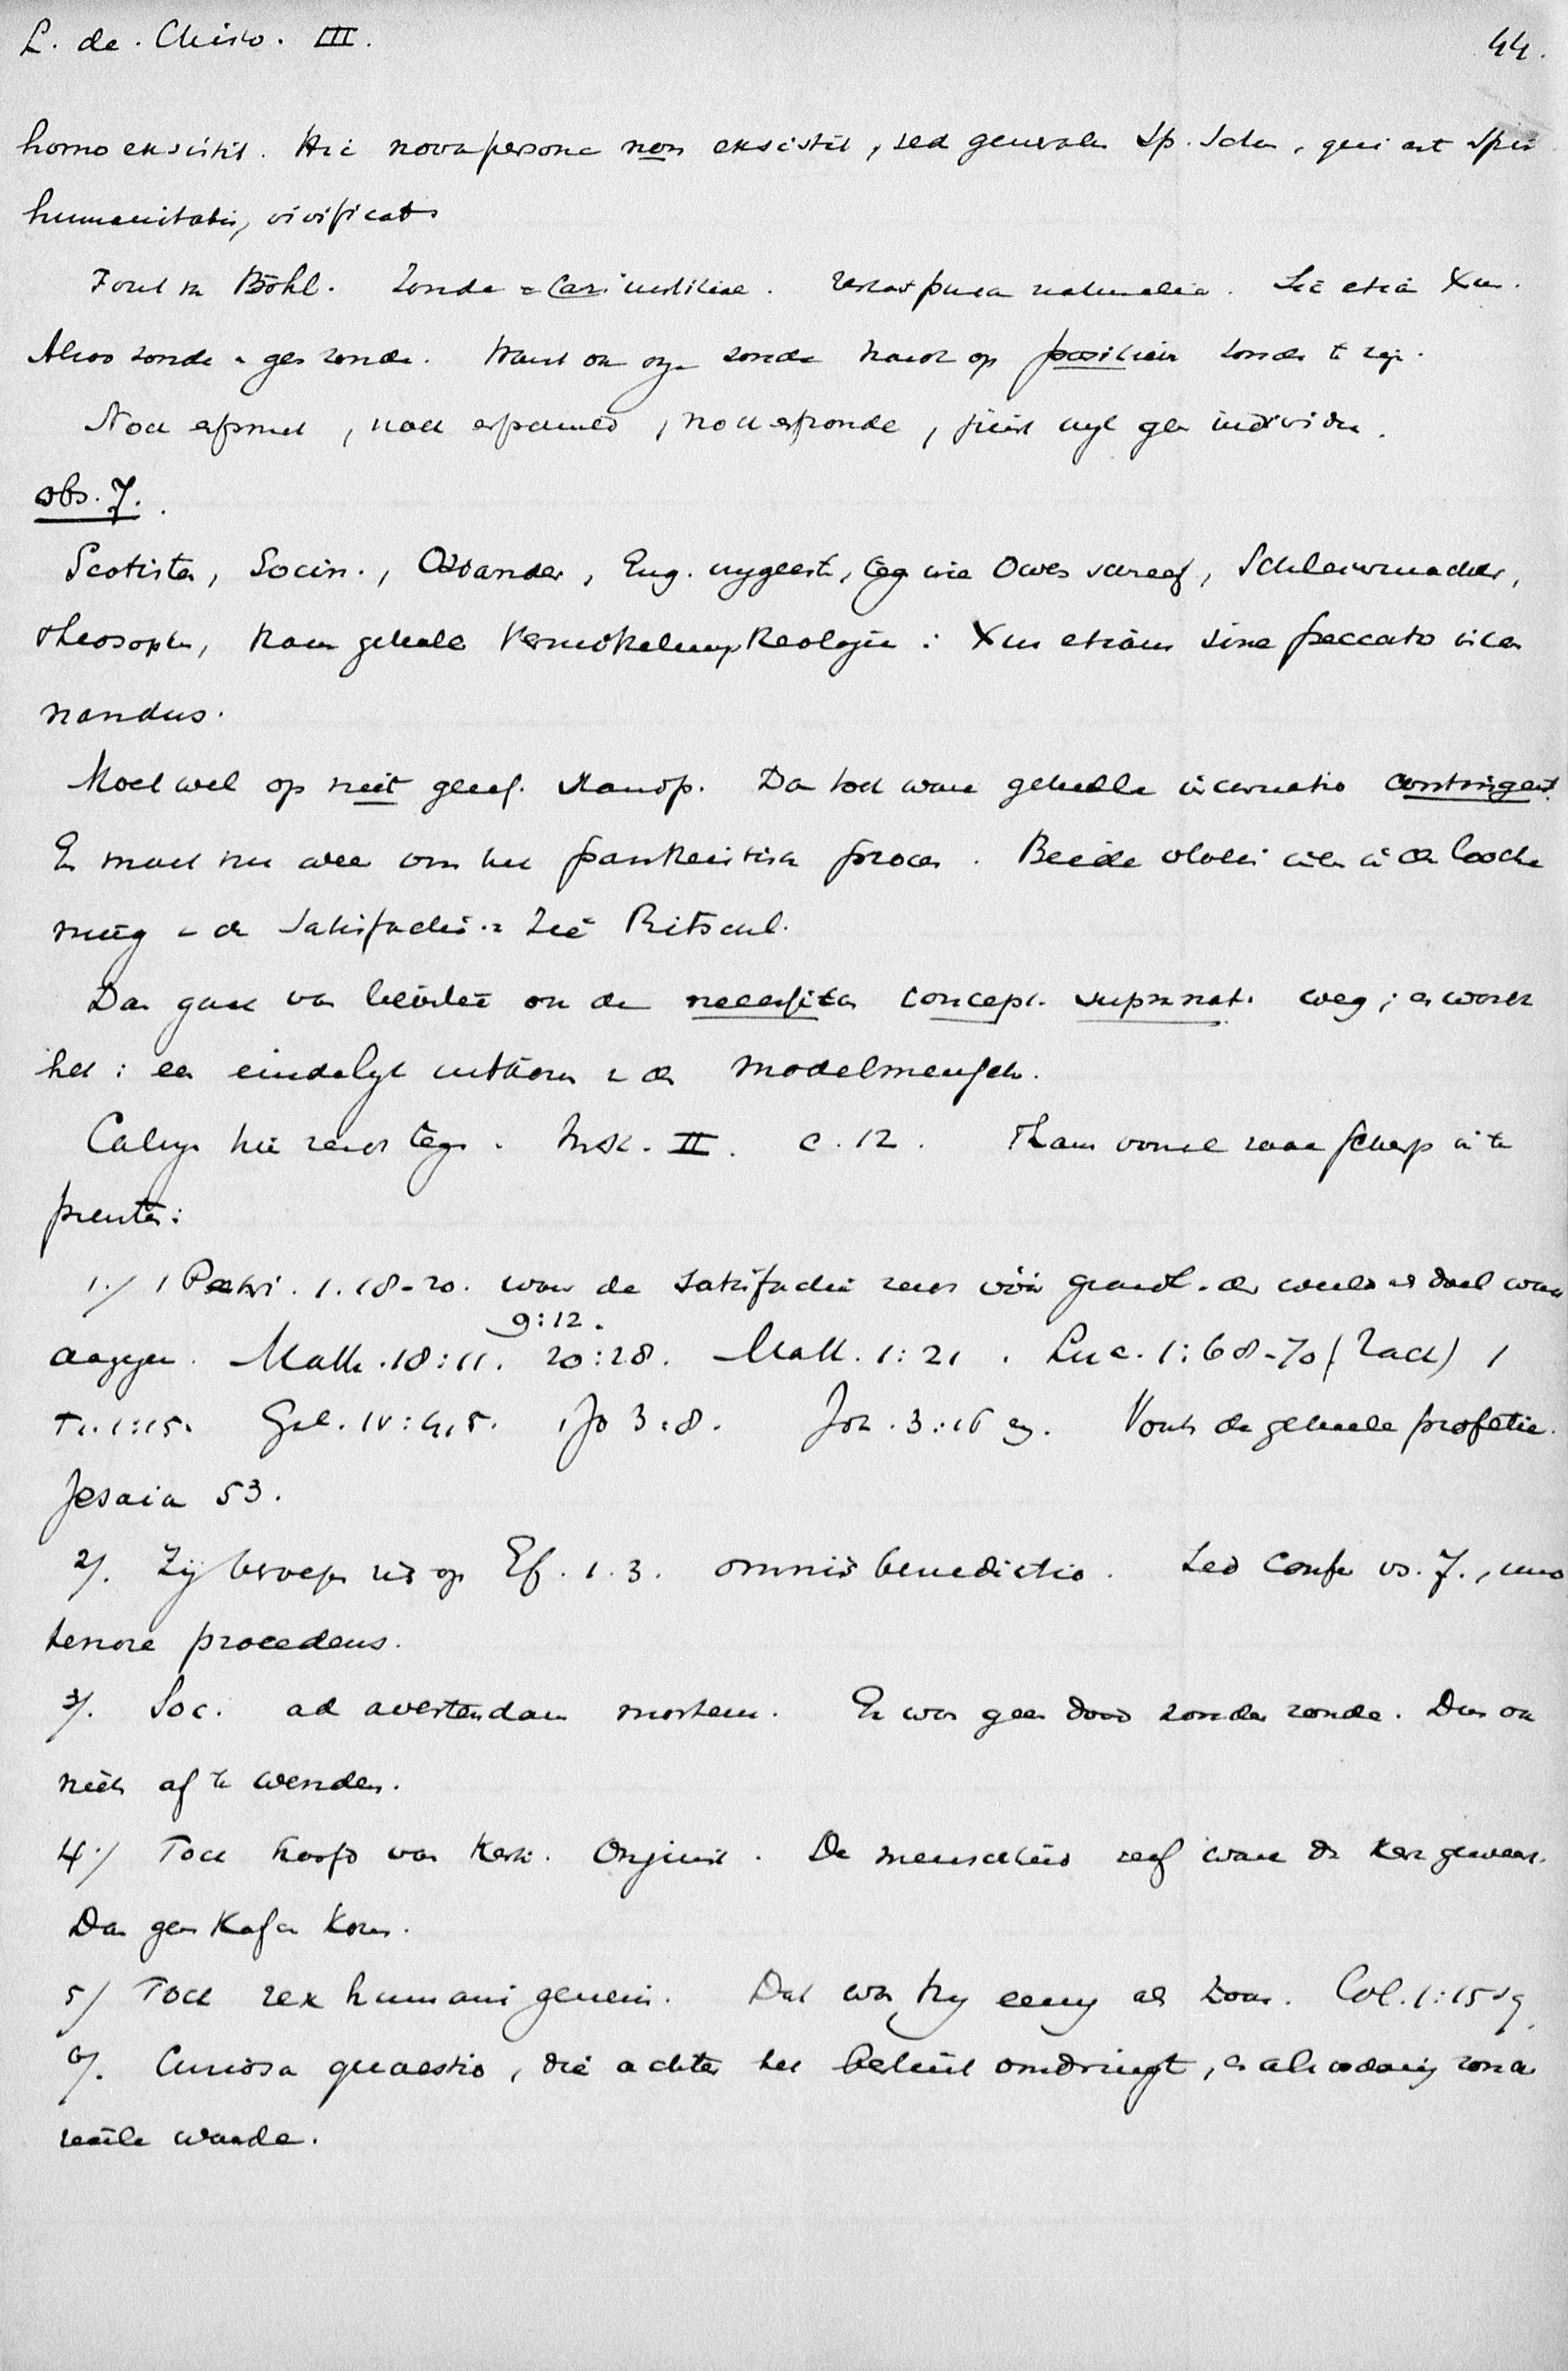 L. de. Christo. III. 44.
homo existit. Hic nova persona non existit, sed generalis Sp. Sctus, qui est Spir
humanitatis, vivificat
Fout van Böhl. Zonde = Car. iustitiae. restat pura naturalia. Sic etiam Xus.
Alsoo zonde = geen zonde. Want om onze zonde had op positieve zonde te zijn.
Noch erfsmet, noch erfschuld, noch erfzonde, juist wijl geen individu.
obs. 7.
Scotisten, Socin., Osiander, Eng. , tegen wie Owen schreef, Schleiermacher,
theosophen, haar geheele Vermittelungstheologie: Xus etiam sine peccato incar
nandus.
Moet wel op niet geref. standp. Dan toch ware geheele incarnatio contingent.
En moet nu weer om het pantheistisch proces. Beide vloeien inéén in de looche
ning v. de satisfactie. Zie Ritschl.
Dan gaat van lieverlee ook de necessitas concept. supranat. weg; er wordt
het: een eindelijk uitkomen v. de modelmensch.
Calvijn hier reeds tegen. Inst. II. c. 12. Thans vooral zaak scherp in te
prenten:
1./ 1 Petri. 1.18-20. waar de satisfactie reeds vóór grondl. der wereld als doel word
9:12.
aangegeven. Matth. 18:11. 20:28. Matt. 1:21. Luc. 1:68-70 (Zach) 1
Ti. 1:15. Gal. IV:4,5. 1 Jo 3:8. Joh. 3:16 enz. Voorts de geheele profetie.
Jesaia 53.
2/. Zij beroepen zich op Ef. 1.3. omnis benedictio. Sed confer vs. 7., uno
tenore procedens.
3/. Soc. ad avertendam mortem. Er was geen dood zonder zonde. Dus ook
niets af te wenden.
4./ Toch hoofd van Kerk. Onjuist. De menschheid zelf ware de Kerk geweest.
Dan geen Kaf en Koren.
5/ Toch rex humani generis. Dat was hij eeuwig als Zoon. Col. 1:15 sq.
6/. Curiosa quaestio, die achter het besluit omdringt, en als zoodanig zonder
reëele waarde.